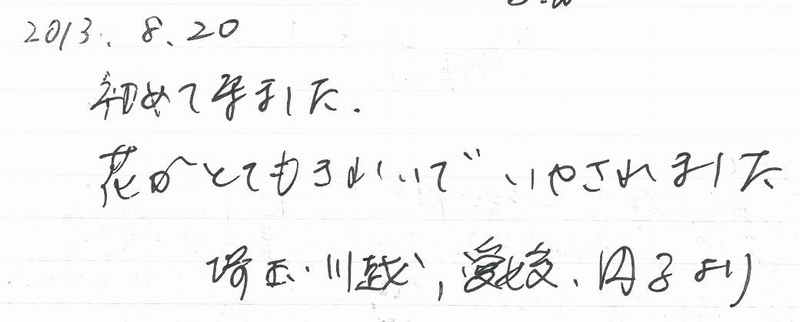 2013. 8. 20
初めて来ました.
花がとてもきれいで いやされました
埼玉・川越, 愛媛、円子より